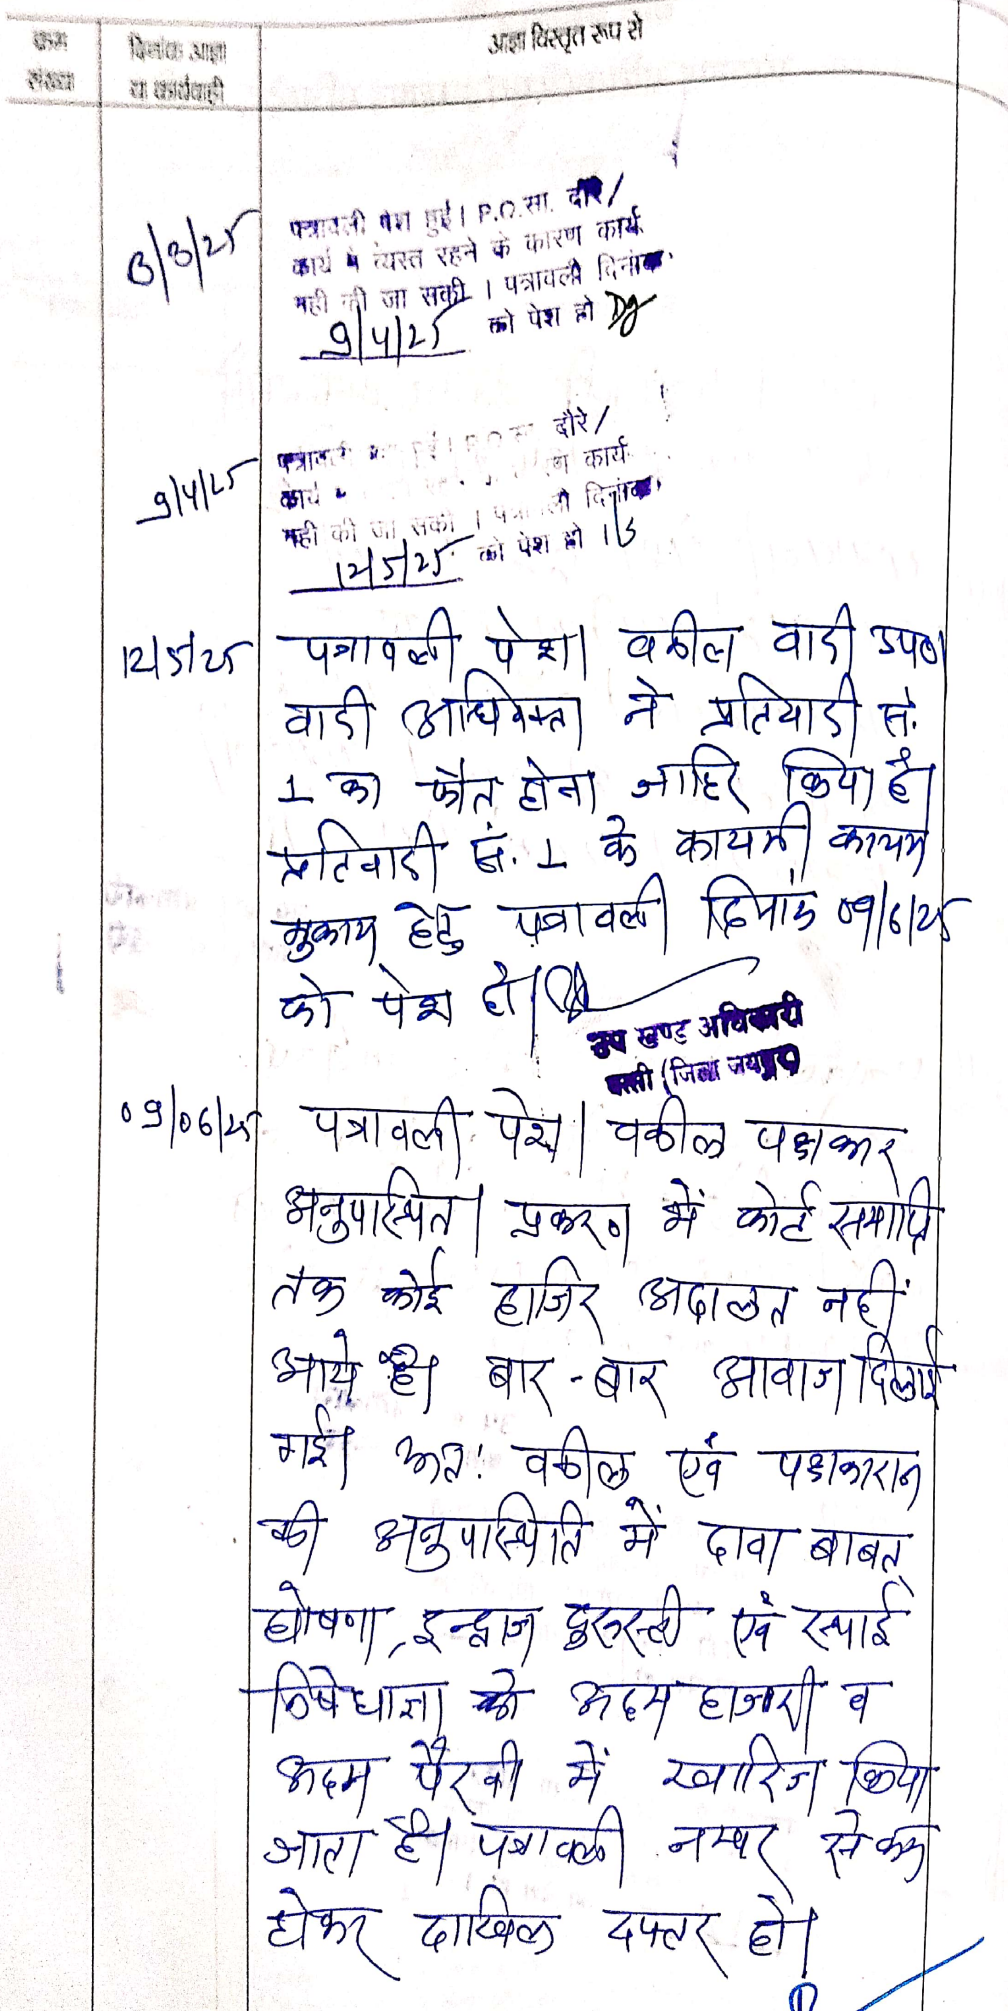 क्रम संख्या
दिनांक आज्ञा या कार्यवाही
आज्ञा विस्तृत रूप से
3/25
पत्रावली पेश हुई। P.O.सा. दौरे/
कार्य में व्यस्त रहने के कारण कार्य.
नही की जा सकी । पत्रावली दिनांक.
9/4/25 को पेश हो
9/4/25
पत्रावली दौरे/
कार्य ण कार्य
नही की जा सकी । पत्रा ली दिनांक.
12/5/25 को पेश हो
12/5/25 पत्रावली पेश। वकील वादी उप०
वादी अधिवक्ता ने प्रतिवादी सं.
1 का फौत होना जाहिर किया है।
प्रतिवादी सं. 1 के कायमी कायम
मुकाम हेतु पत्रावली दिनांक 09/6/25
को पेश हो।
उप खण्ड अधिकारी
बस्सी (जिला जयपुर)
09/06/25 पत्रावली पेश। वकील पक्षकार
अनुपस्थित। प्रकरण में कोर्ट समाप्ति
तक कोई हाजिर अदालत नहीं
आये है। बार-बार आवाज दिलाई
गई। अत: वकील एवं पक्षकारान
की अनुपस्थिति में दावा बाबत्
घोषणा, इन्द्राज दुरूस्ती एवं स्थाई
निषेधाज्ञा को अदम हाजरी व
अदम पैरवी में खारिज किया
जाता है। पत्रावली नम्बर से कम
होकर दाखिल दफ्तर हो।